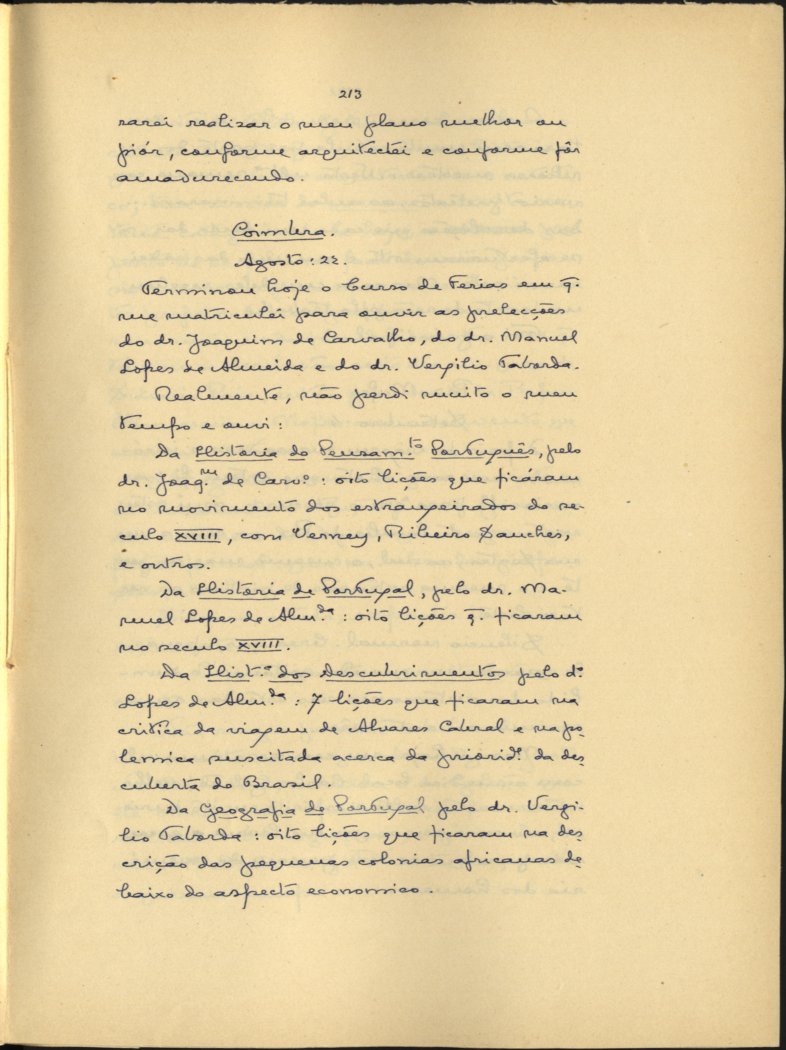 213
rarei realizar o meu plano melhor ou
piór, conforme arquitectei e conforme fôr
amadurecendo.
Coimbra.
Agosto: 22.
Terminou hoje o Curso de Ferias em q̄.
me matriculei para ouvir as prelecções
do dr. Joaquim de Carvalho, do dr. Manuel
Lopes de Almeida e do dr. Vergilio Taborda.
Realmente, não perdi muito o meu
tempo e ouvi:
Da Historia do Pensam.to Português, pelo
dr. Joaq.m de Carv.o: oito lições que ficáram
no movimento dos estrangeirados do se-
culo XVIII, com Verney, Ribeiro Sanches,
e outros.
Da Historia de Portugal, pelo dr. Ma-
nuel Lopes de Alm.da: oito lições q̄. ficaram
no seculo XVIII.
Da Hist.a dos Descubrimentos pelo d.r
Lopes de Alm.da: 7 lições que ficaram na
critica da viagem de Alvares Cabral e na po-
lemica suscitada acerca da priorid.e da des-
cuberta do Brasil.
Da Geografia de Portugal pelo dr. Vergi-
lio Taborda: oito lições que ficaram na des-
crição das pequenas colonias africanas de-
baixo do aspecto economico.